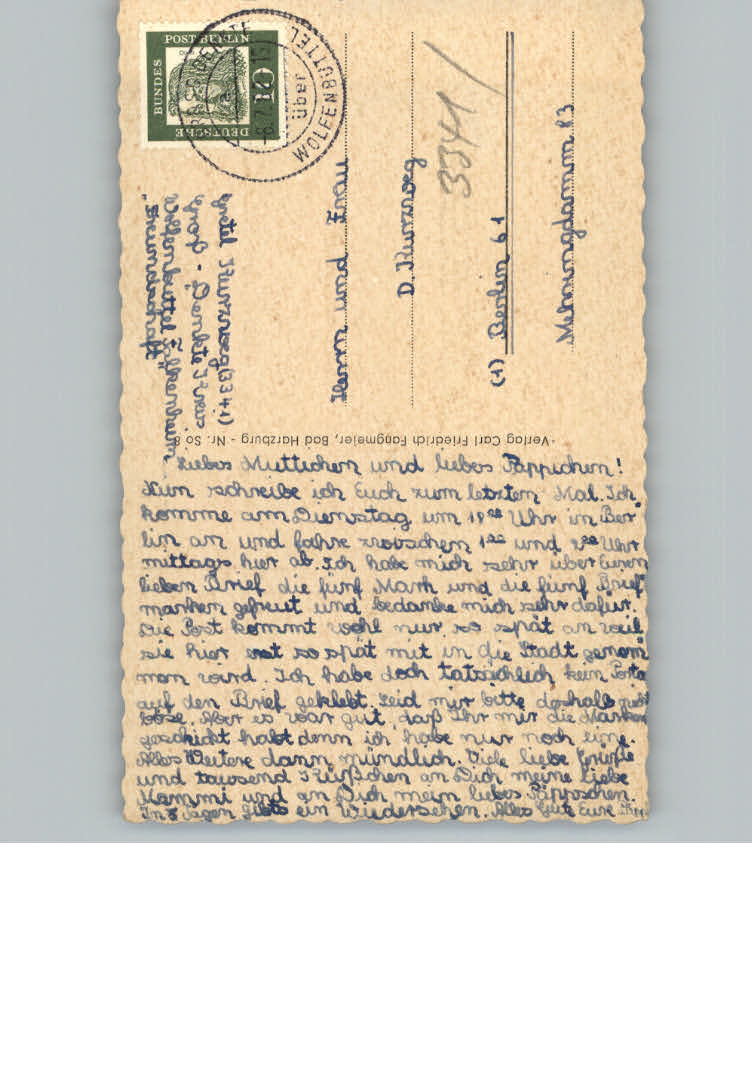 DEUTSCHE
BUNDES
POST BERLIN
10
über
WOLFENBÜTTEL
3341
Gretel Kunzweg (3341)
Groß - Denkte Kreis
Wolfenbüttel Falkenheim
Herrn und Frau
D. Kunzweg
(1) Berlin 61
Mehringdamm 83
Verlag Carl Friedrich Fangmeier, Bad Harzburg - Nr. So 8
Liebes Muttichen und liebes Pappichen!
Nun schreibe ich Euch zum letzten Mal. Ich
komme am Dienstag um 18 00 Uhr in Ber
lin an und fahre zwischen 1 00 und 2 00 Uhr
mittags hier ab. Ich habe mich sehr über Euren
lieben Brief die fünf Mark und die fünf Brief
marken gefreut und bedanke mich sehr dafür.
Die Post kommt wohl nur so spät an weil
sie hier erst so spät mit in die Stadt genom
men wird. Ich habe doch tatsächlich kein Porto
auf den Brief geklebt. Seid mir bitte deshalb nicht
böse. Aber es war gut, daß Ihr mir die Marken
geschickt habt denn ich habe nur noch eine.
Alles Weitere dann mündlich. Viele liebe Grüße
und tausend Küßchen an Dich meine liebe
Mammi und an Dich mein liebes Päppschen.
In 8 Tagen gibts ein Wiedersehen. Alles Gute Eure